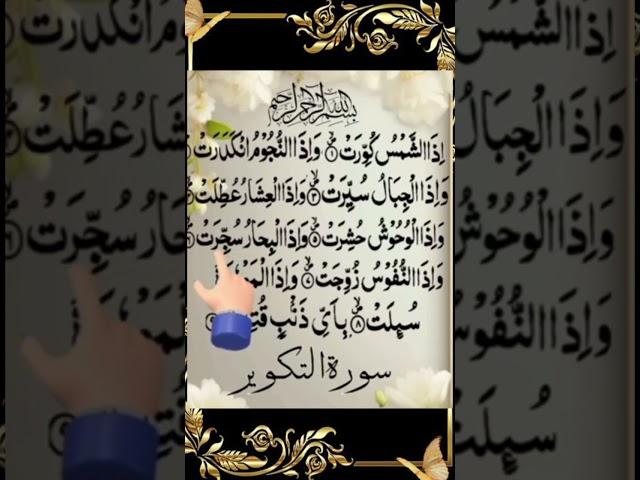 بسم الله الرحمن الرحيم
اِذَا الشَّمْسُ كُوِّرَتْ ۙ‏﴿۱﴾ وَاِذَا النُّجُوْمُ انْكَدَرَتْ
وَاِذَا الْجِبَالُ سُيِّرَتْ ۙ‏﴿۳﴾ وَاِذَا الْعِشَارُ عُطِّلَتْ
وَاِذَا الْوُحُوْشُ حُشِرَتْ ۙ‏﴿۵﴾ وَاِذَا الْبِحَارُ سُجِّرَتْ
وَاِذَا النُّفُوْسُ زُوِّجَتْ ۙ‏﴿۷﴾ وَاِذَا
سُىِٕلَتْ ۙ‏﴿۸﴾ بِاَىِّ ذَنْۢبٍ
سورة التكوير